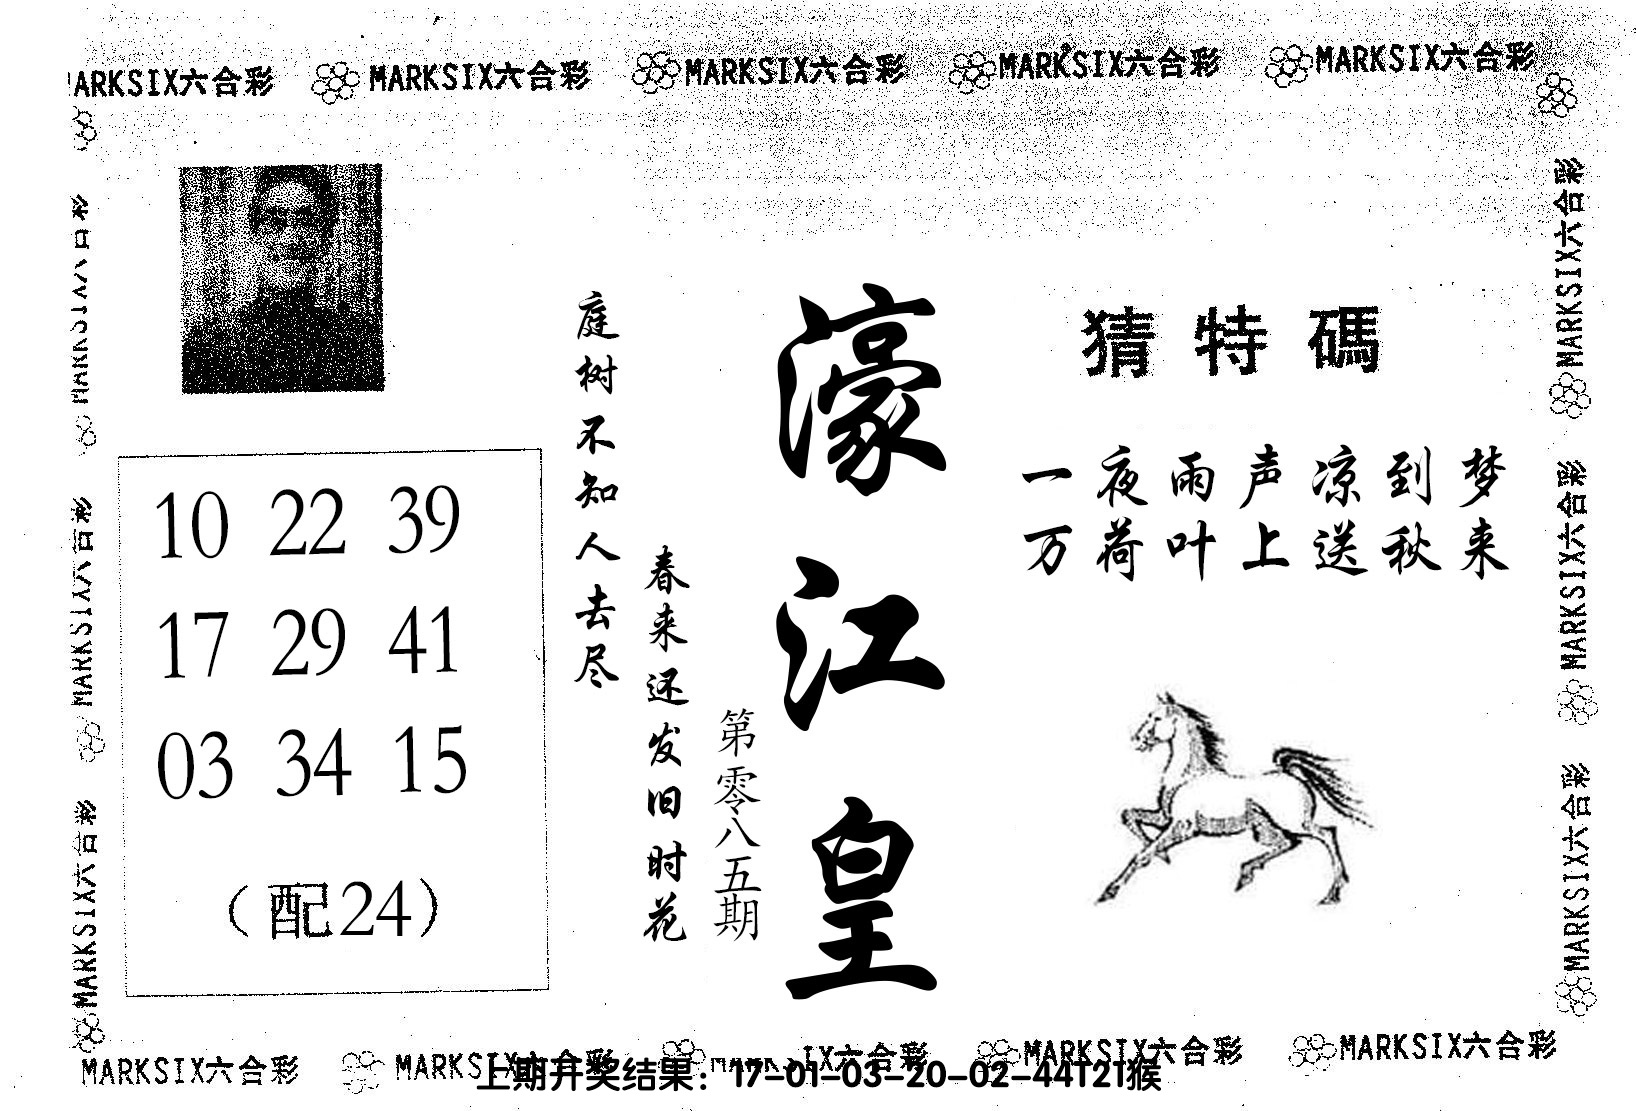 MARKSIX六合彩 MARKSIX六合彩 MARKSIX六合彩 MARKSIX六合彩
猜特碼
一夜雨声凉到梦
万荷叶上送秋来
濠江皇
第零八五期
庭树不知人去尽
春来还发旧时花
10 22 39
17 29 41
03 34 15
（配24）
MARKSIX六合彩
MARKSIX六合彩
MARKSIX六合彩
MARKSIX六合彩
MARKSIX六合彩
MARKSIX六合彩 MARKSIX六合彩 MARKSIX六合彩
上期开奖结果：17-01-03-20-02-44T21猴